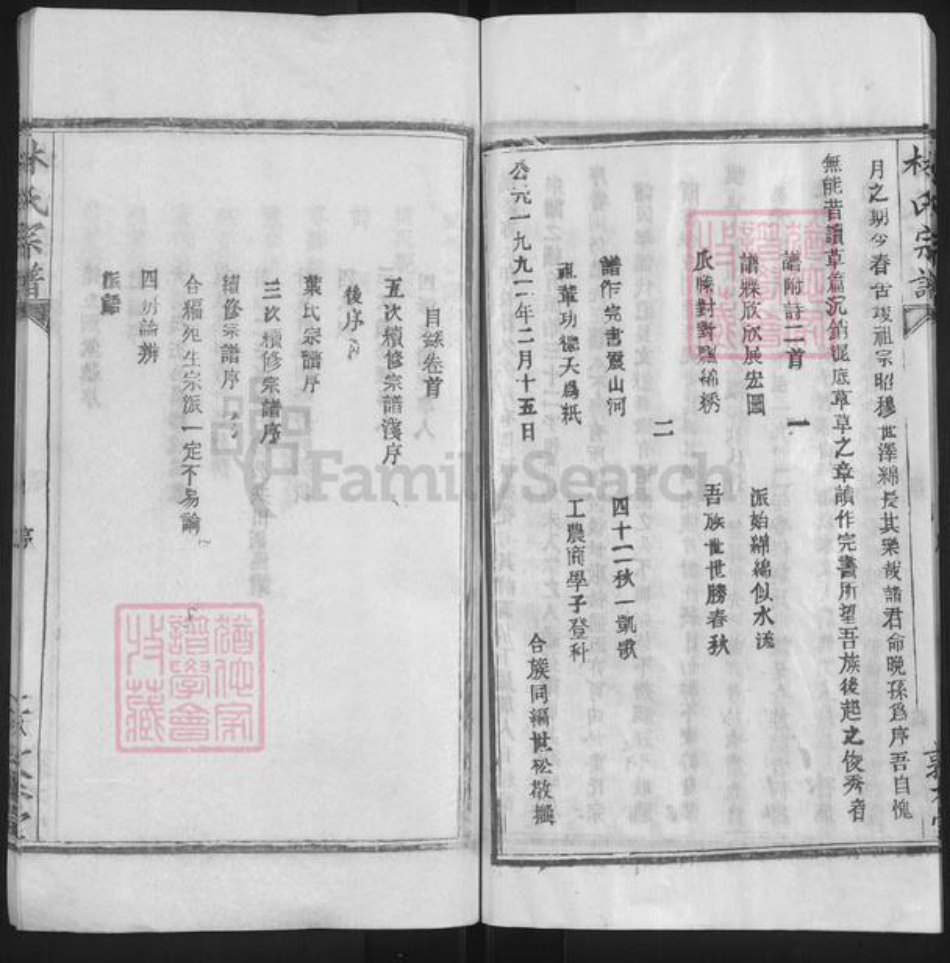 林氏宗譜
月之期今春告竣祖宗昭穆世澤綿長其樂哉諸君命晚孫爲序吾自愧
無能昔讀草篇沉銷泥底草草之章讀作完書所望吾族後起之俊秀者
譜附詩二首
一
譜牒欣欣展宏圖 派始綿綿似水流
瓜瓞對對飄綿綉 吾族世世勝春秋
二
譜作完書震山河 四十二秋一凱歌
祖輩功德天爲紙 工農商學子登科
公元一九九一年二月十五日
合族同編世松敬撰
目錄卷首
五次續修宗譜淺序
後序
葉氏宗譜序
三次續修宗譜序
續修宗譜序
合編先生宗派一定不易論
四明論辨
派語
林氏宗譜
序
FamilySearch
譜學會
收藏